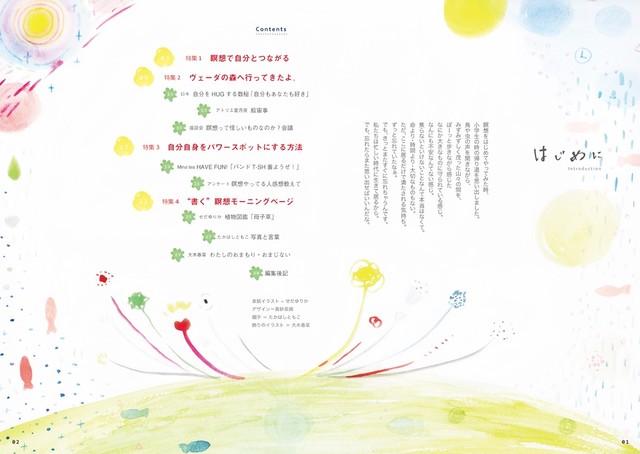 はじめに
Introduction
瞑想をはじめてやってみた時、
小学生の時の帰り道を思い出しました。
鳥や虫の声を聞きながら、
みずみずしく茂った山々の間を、
ぼーっと歩きながら感じた
なにか大きなものに守られている感じ。
なんにも不安なんてない感じ。
焦らないといけないことなんて本当はなくて。
命より・時間より・大切なものもない。
ただ、ここに居るだけで満たされる気持ち。
ずっと忘れていたなぁ。
でも、きっとまたすぐに忘れちゃうんです。
私たちは忙しい時代に生きて居るから。
でも、忘れたらまた思い出せばいいんだな。
01
Contents
特集 1 瞑想で自分とつながる
特集 2 ヴェーダの森へ行ってきたよ。
自分を HUG する数秘「自分もあなたも好き」
アトリエ愛月庵 絵宙事
座談会 瞑想って怪しいものなのか?会議
特集 3 自分自身をパワースポットにする方法
HAVE FUN!「バンド T-SH 着ようぜ!」
アンケート 瞑想やってる人感想教えて
特集 4 "書く" 瞑想モーニングページ
せだゆりか 植物図鑑「母子草」
たかはしともこ 写真と言葉
大木春菜 わたしのおまもり・おまじない
編集後記
表紙イラスト = せだゆりか
題字 = たかはしともこ
飾りのイラスト = 大木春菜
02